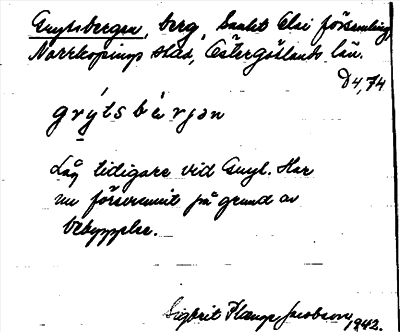 Grytsbergen, berg, Sankt Olai församling
Norrköpings stad, Östergötlands län.
D4,74
grýtsbèrjən
Låg tidigare vid Gryt. Har
nu försvunnit på grund av
bebyggelse.
Sigbrit Plænge Jacobson, 1942.